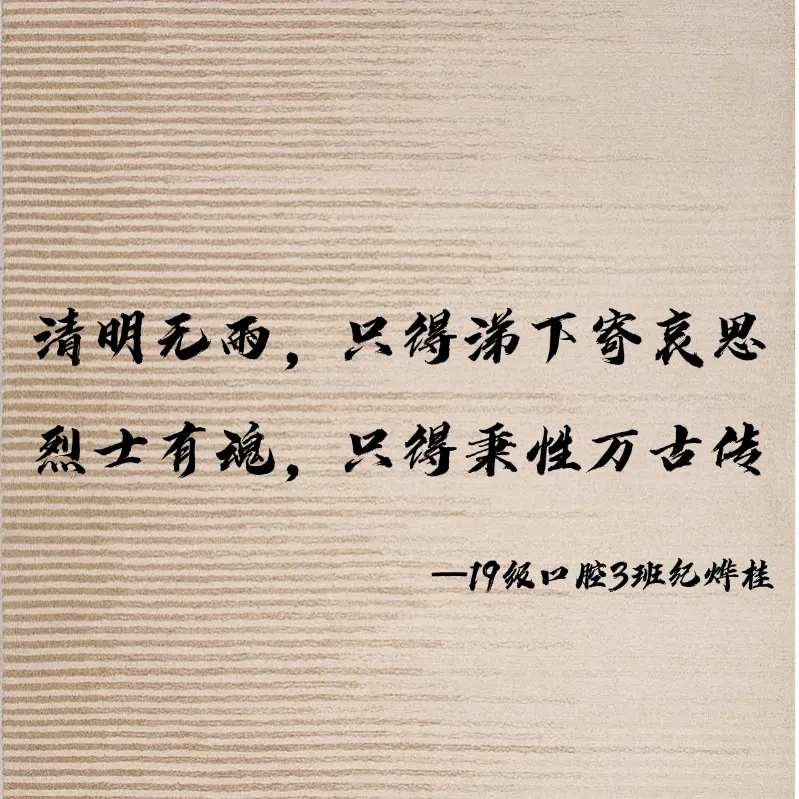 清明无雨，只得涕下寄哀思
烈士有魂，只得秉性万古传
—19级口腔3班纪烨桂